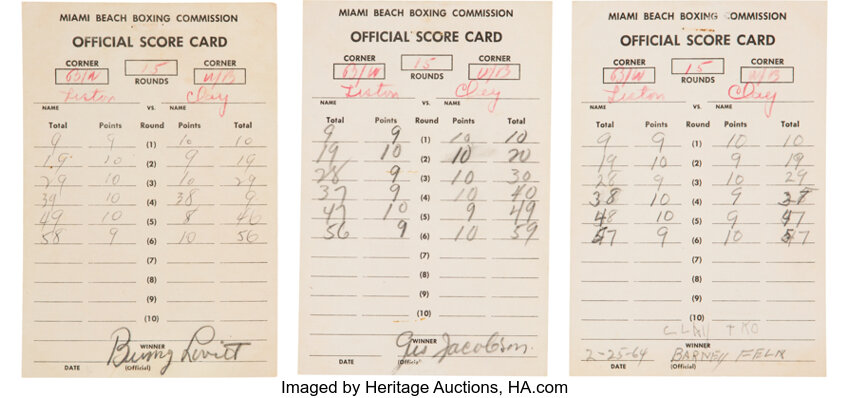 MIAMI BEACH BOXING COMMISSION
OFFICIAL SCORE CARD
CORNER 15 CORNER
B/W ROUNDS W/B
Liston Clay
NAME VS. NAME
Total Points Round Points Total
9 9 (1) 10 10
19 10 (2) 9 19
29 10 (3) 10 29
39 10 (4) 38 9
49 10 (5) 8 46
58 9 (6) 10 56
(7)
(8)
(9)
(10)
WINNER
Bunny Lovitt
DATE (Official)
MIAMI BEACH BOXING COMMISSION
OFFICIAL SCORE CARD
CORNER 15 CORNER
B/W ROUNDS W/B
Liston Clay
NAME VS. NAME
Total Points Round Points Total
9 9 (1) 10 10
19 10 (2) 10 20
28 9 (3) 10 30
37 9 (4) 10 40
47 10 (5) 9 49
56 9 (6) 10 59
(7)
(8)
(9)
(10)
WINNER
Gus Jacobson
DATE (Official)
MIAMI BEACH BOXING COMMISSION
OFFICIAL SCORE CARD
CORNER 15 CORNER
B/W ROUNDS W/B
Liston Clay
NAME VS. NAME
Total Points Round Points Total
9 9 (1) 10 10
19 10 (2) 9 19
28 9 (3) 10 29
38 10 (4) 9 38
48 10 (5) 9 47
57 9 (6) 10 57
(7)
(8)
(9)
(10)
CLAY TKO
WINNER
2-25-64 BARNEY FELIX
DATE (Official)
Imaged by Heritage Auctions, HA.com